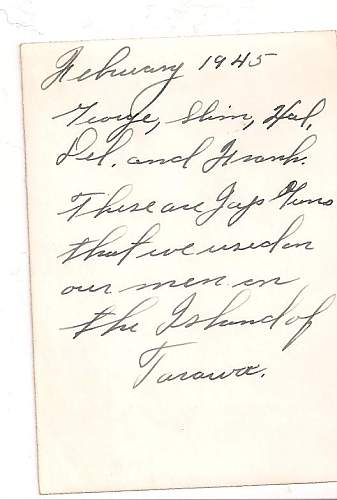 February 1945
George, Slim, Hal,
Del. and Frank.
These are Japs Guns
that we used on
our men on
the Island of
Tarawa.